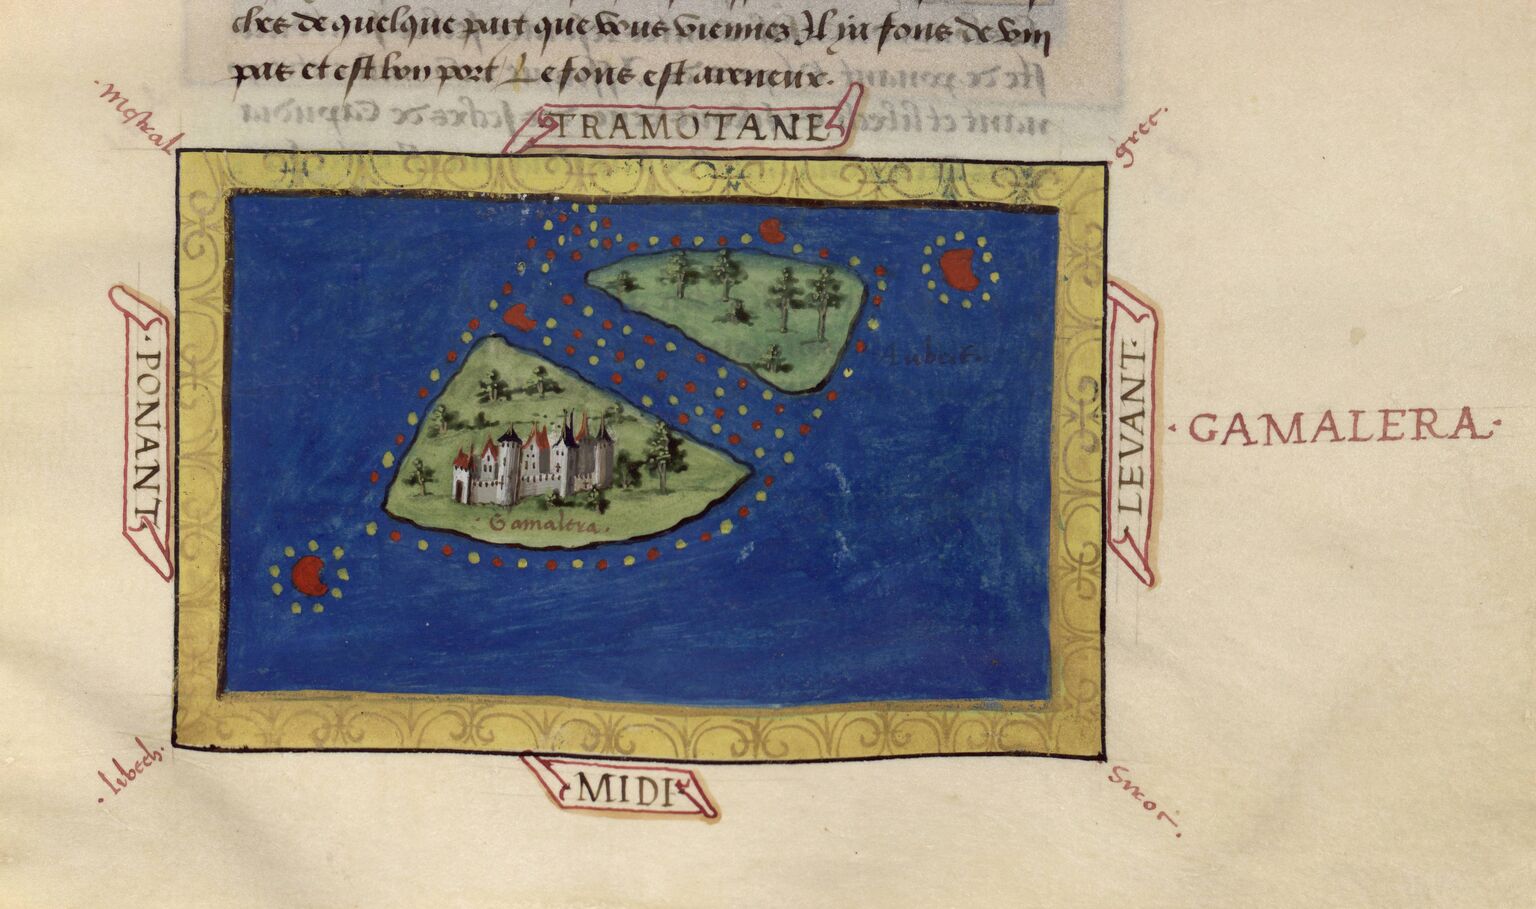 ches de quelque part que vous viennez Il ya fons de viii
pas et est bon port Le fons est areneux.
TRAMOTANE
·mestral
·grec·
·PONANT
·LEVANT·
·GAMALERA·
Aubert
·Gamalera·
·lebech·
MIDI